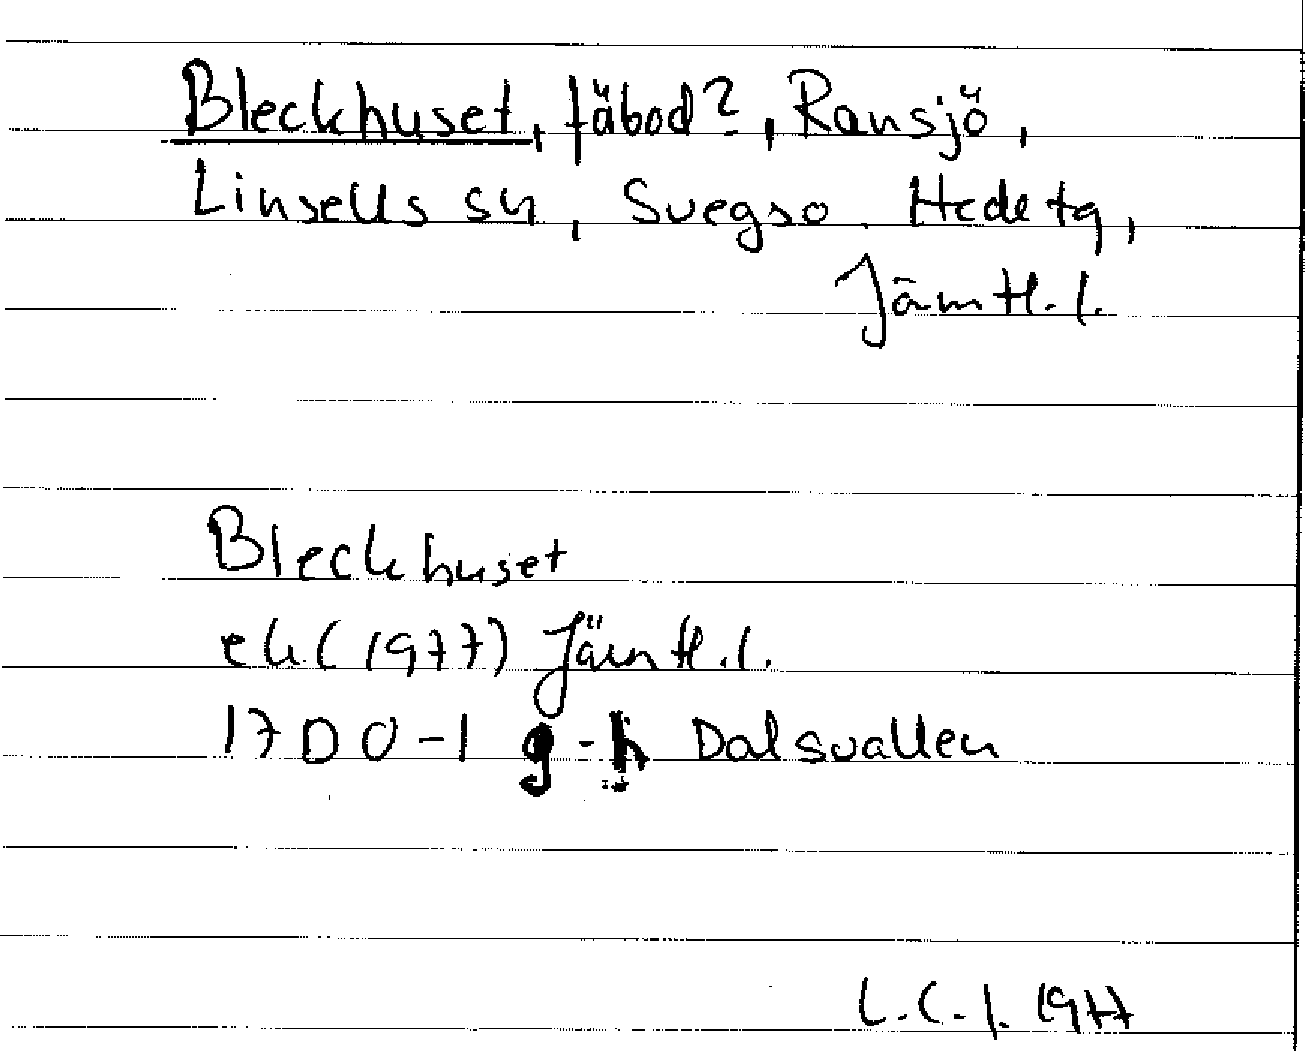 Bleckhuset, fäbod?, Ransjö,
Linsells sn, Svegs o Hede tg,
Jämtl. l.
Bleckhuset
ek (1977) Jämtl. l.
17D 0-1 g-h Dalsvallen
L.C.J. 1977